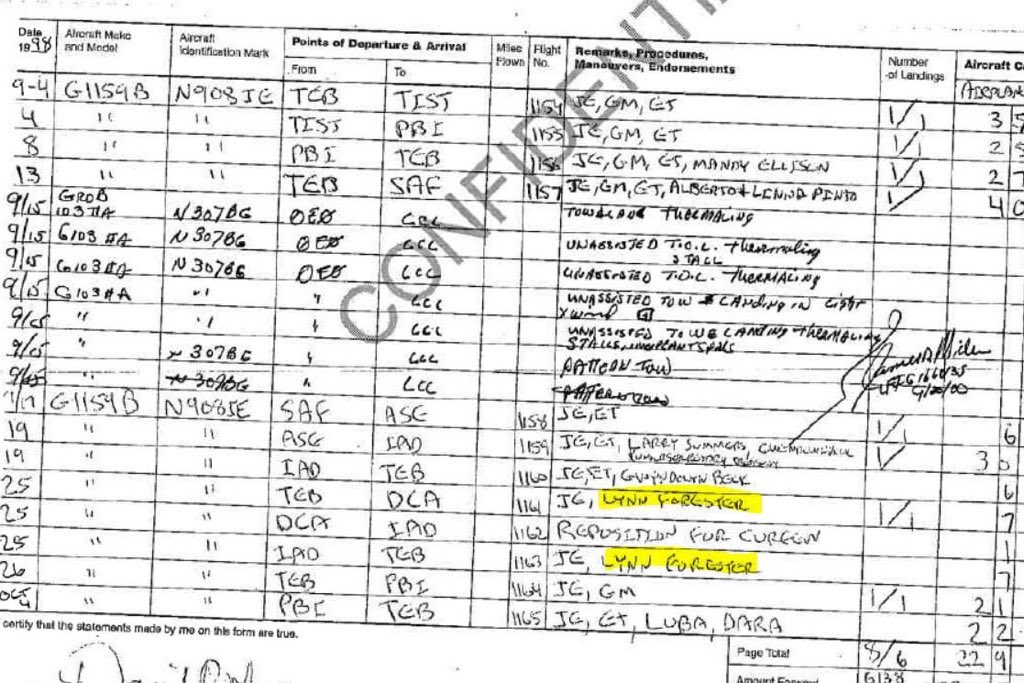 CONFIDENTI
Date 1998 Aircraft Make and Model Aircraft Identification Mark Points of Departure & Arrival From To Miles Flown Flight No. Remarks, Procedures, Maneuvers, Endorsements Number of Landings Aircraft C
AIRPLAN
9-4 G1159B N908JE TEB TIST 1154 JE, GM, ET 1/1 3
4 " " TIST PBI 1155 JE, GM, ET 1/1 2
8 " " PBI TEB 1156 JE, GM, ET, MANDY ELLISON 1/1 2
13 " " TEB SAF 1157 JE, GM, ET, ALBERTO + LINDA PINTO 4
9/15 GROB 103 IIA N307BG 0E0 LCC THERMALING
9/15 G103 IIA N307BG 0E0 LCC UNASSISTED T.O.L. Thermaling STALL
9/15 G103 IIA N307BG 0E0 LCC UNASSISTED T.O.L. THERMALING
9/15 G103 IIA " " LCC UNASSISTED TOW & LANDING IN LIGHT XWIND
9/15 " " " LCC UNASSISTED TOW & LANDING THERMALING STALLS
9/15 " N307BG " LCC PATTERN TOW
" N307BG " LCC
G1159B N908JE SAF ASE 1158 JE, ET 1/1 6
19 " " ASE IAD 1159 JE, ET, LARRY SUMMERS, 3
19 " " IAD TEB 1160 JE, ET, GWENDOLYN BECK 6
25 " " TEB DCA 1161 JE, LYNN FORESTER 1/1 7
25 " " DCA IAD 1162 REPOSITION FOR CURFEW 1
25 " " IAD TEB 1163 JE, LYNN FORESTER 7
26 " " TEB PBI 1164 JE, GM 1/1 2 1
OCT 4 " " PBI TEB 1165 JE, ET, LUBA, DARA 2 2
certify that the statements made by me on this form are true.
Page Total 8/6 22 9
Amount Forward 6138